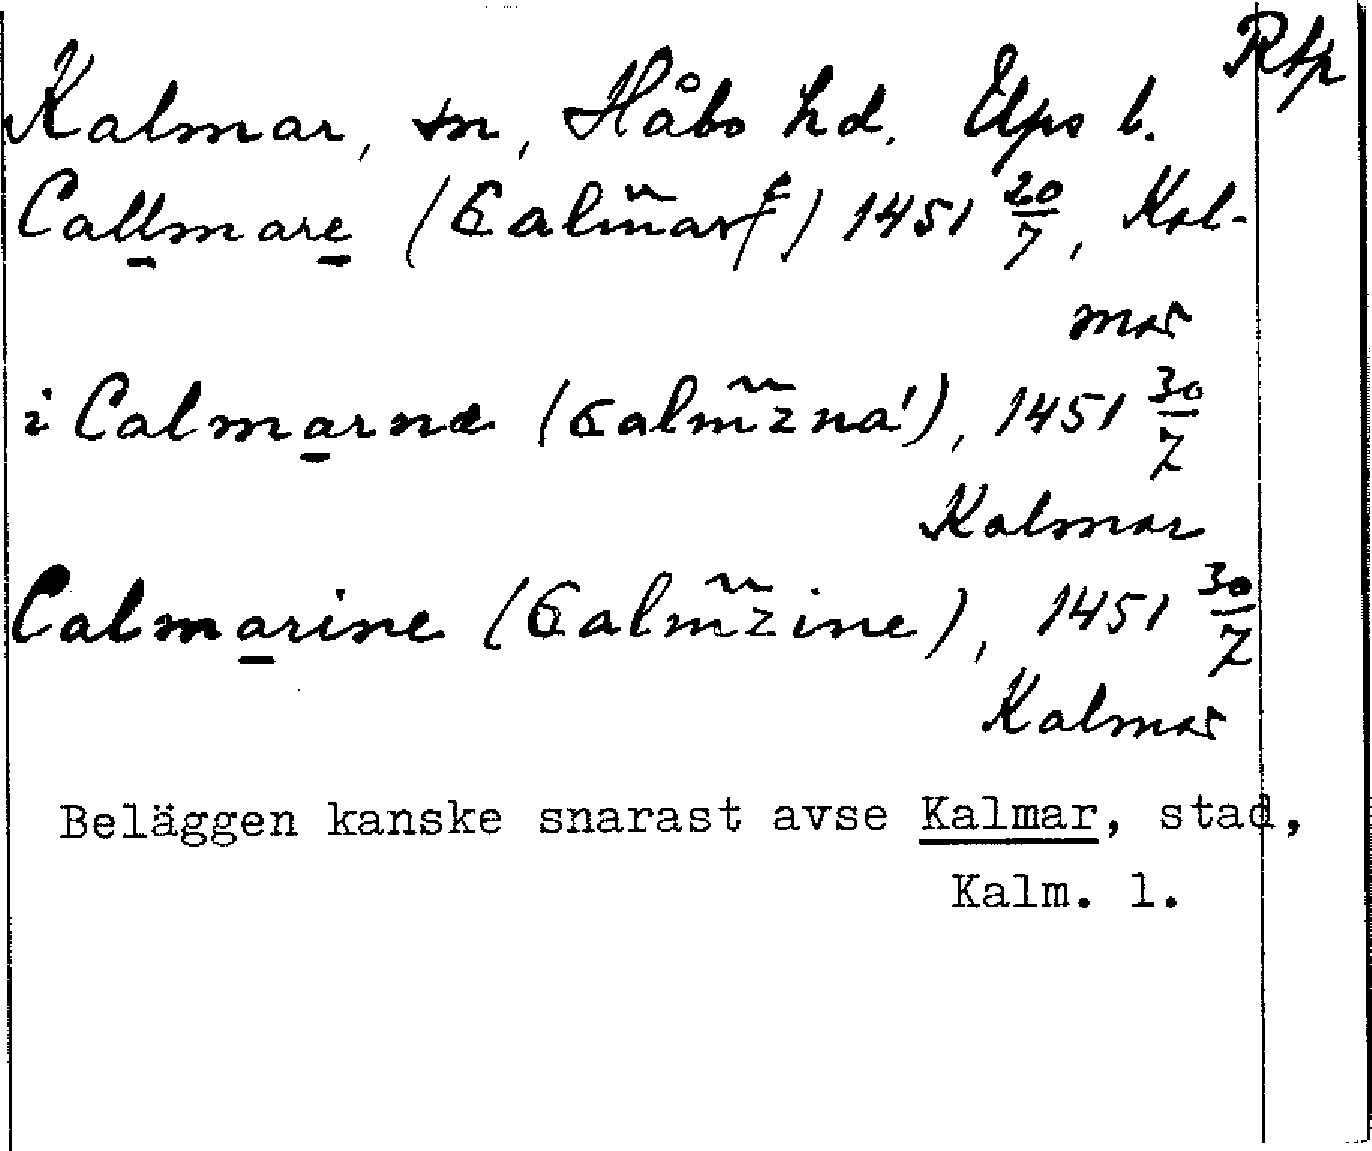 Rtp
Kalmar, sn, Håbo hd. Upps l.
Callmare (Calm̃arɇ) 1451 20/7, Kal-
mar
i Calmarna (Calm̃zna'), 1451 30/7
Kalmar
Calmarine (Calm̃zine), 1451 30/7
Kalmar
Beläggen kanske snarast avse Kalmar, stad,
Kalm. l.